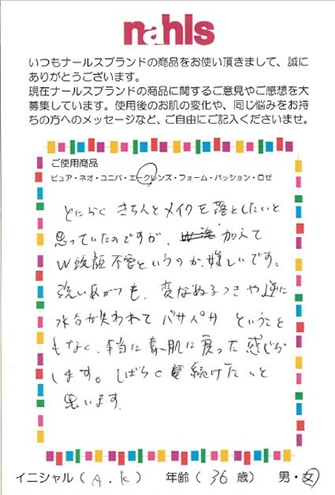 nahls
いつもナールスブランドの商品をお使い頂きまして、誠に
ありがとうございます。
現在ナールスブランドの商品に関するご意見やご感想を大
募集しています。使用後のお肌の変化や、同じ悩みをお持
ちの方へのメッセージなど、ご自由にご記入くださいませ。
ご使用商品
ピュア・ネオ・ユニバ・エークレンズ・フォーム・パッション・ロゼ
とにかく きちんとメイクを落としたいと
思っていたのですが、加えて
W洗顔不要というのが嬉しいです。
洗いあがりも、変なぬるつきや逆に
水分が失われて パサパサ ということ
もなく、本当に素肌に戻った感じが
します。しばらく続けたいと
思います。
イニシャル ( A.K ) 年齢 ( 36 歳 ) 男・女